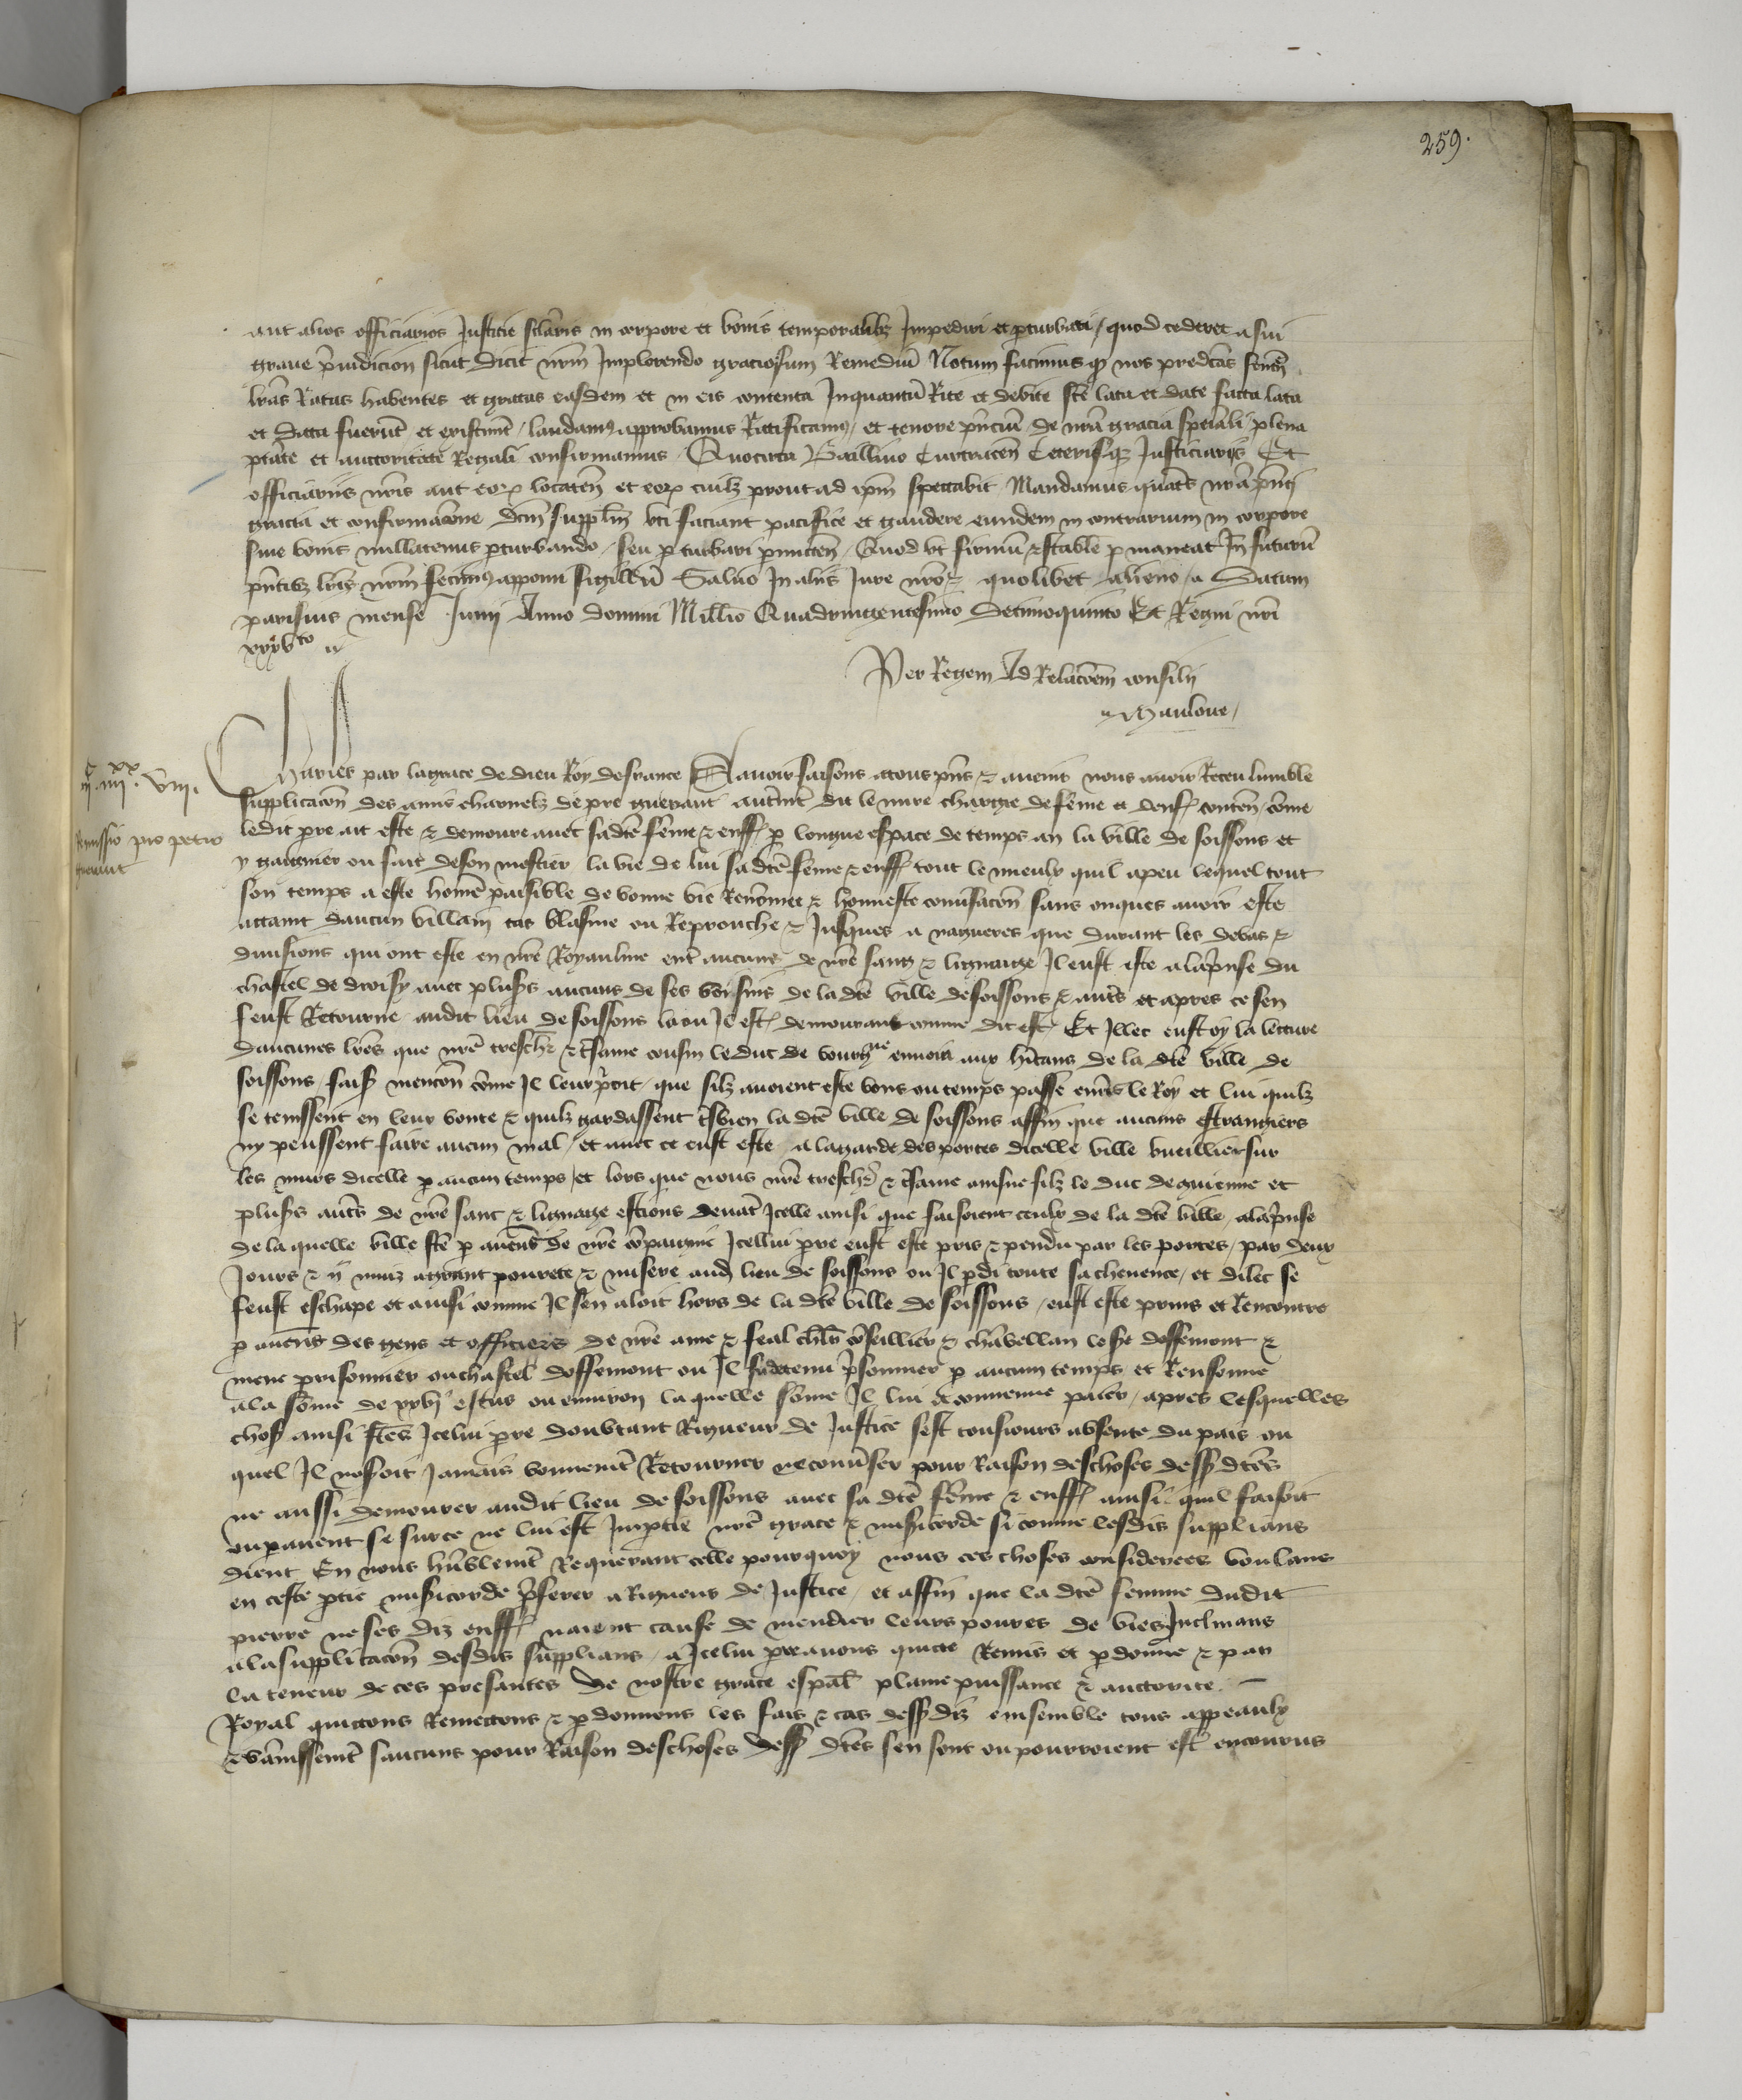 259.
aut alios officiarios Justicie sclaris in corpore et bonis temporalibz Impediri et pturbari / quod cederet a sui
graue piudicion sicut dicit nrm Implorendo graciosum Remediu Notum facimus q nos predcas
lras Ratas habentes et gratas easdem et in eis contenta Inquantu Rite et debite fce lata et date facta lata
et data fuerut et existunt / laudamq approbamus Ratificamq / et tenore pnciu de nra gracia speciali plena
ptate et auctoritate Regali confirmamus Quocirca Baillivo Ceterisqz Justiciariis Et
officiariis nris aut eorz locaten et eorz cuilz prout ad ipm spectabit Mandamus quats nra pnti
gracia et confirmacone dcm supplm vti faciant pacifice et gaudere eundem in contrarium in corpore
siue bonis nullatenus pturbando / seu pturbari pmitten / Quod vt firmu et stabile pmaneat In futuru
pntibz lris nrm fecimq apponi sigillu Saluo In aliis Jure nro et quolibet alieno / Datum
parisius mense Junii Anno domini Millio Quadringentesimo Decimoquinto Et Regni nri
xxxvto
Per Regem Ad Relacoem consilii
Mauloue /
c xx
iii iiii. viii.
Remissio pro petro
guerant
Charles par la grace de dieu Roy de france Sauoir faisons a tous pns et auenir nous auoir Receu lumble
supplicacon des amis charnelz de pre guerant autemt dit le mire chargie de feme et denff conten come
ledit pre ait este et demoure auec sa dte feme et enff p longue espace de temps an la ville de soissons et
y gaignier ou fait de son mestier la vie de lui sa dte feme et enff tout le mieulx quil a peu lequel tout
son temps a este home paisible de bonne vie Renomee et honneste conusacon sans onques auoir este
attaint daucun villain cas blasme ou Reprouche et Jusques a nagueres que durant les debas et
diuisions qui ont este en nre Royaulme ent aucuns de nre sang et lignaige Il eust este a la pnse du
chastel de auec plusrs aucuns de ses voisins de la dte ville de soissons et auts et apres ce sen
feust Retourne audit lieu de soissons la ou Il est demourant comme dit est Et Illec eust oy la lecture
daucunes lres que nre tresch et tsame cousin le duc de bourgne enuoia aux hitans de la dte ville de
soissons / fais mencon come Il leur / que silz auoient este bons ou temps passe enus le Roy et lui quilz
se tenissent en leur bonte et quilz gardassent tsbien la dte ville de soissons affin que aucuns estrangiers
ny peussent faire aucun mal / et auec ce eust este a la garde des portes dicelle ville sur
les murs dicelle p aucun temps / et lors que nous nre tresch et tsame ainsne filz le duc de guienne et
plusrs auts de nre sanc et lignaige estions deuat Icelle ainsi que faisoient ceulx de la dte ville / a la pnse
de la quelle ville fce p aucuns de nre copaignie Icellui pre eust este pris et pendu par les portes / par deux
Jours et ii nuiz pourete et misere aud lieu de soissons ou Il pdi toute sa cheuence / et dilec se
feust eschape et ainsi comme Il sen aloit hors de la dte ville de soissons / eust este prins et Rencontre
p aucuns des gens et officiers de nre ame et feal chlr coseillier et chabellan le sr doffemont et
mene prisonnier ou chastel doffemont ou Il fu detenu psonnier p aucun temps et Rensonne
a la some de xxvi escus ou enuiron la quelle some Il lui conuenue paier / apres lesquelles
chos ainsi fces Icelui pre doubtant Rigueur de Justice sest tousiours absente du pais ou
quel Il noseroit Jamais bonnemt Retourner ne conuser pour Raison des choses dessdtes
ne aussi demourer audit lieu de soissons auec sa dte feme et enff ainsi quil faisoit
ou pauent se sur ce ne lui est Imptie nre grace et misicorde si comme lesdis supplians
dient En nous hublemt Requerant celle pourquoy nous ces choses considerees voulans
en ceste ptie misicorde pferer a Rigueur de Justice / et affin que la dte femme dudit
pierre ne ses diz enff naient cause de mendier leurs poures de vies Inclinans
a la supplicacon desdis supplians / a Icelui pre auons quicte Remis et pdonne et par
la teneur de ces presantes De nostre grace espal plaine puissance et auctorite
Royal quictons Remectons et pdonnons les fais et cas dessdiz ensemble tous appeaulx
et banissemt saucuns pour Raison des choses dess dtes sen sont ou pourroient est encourus